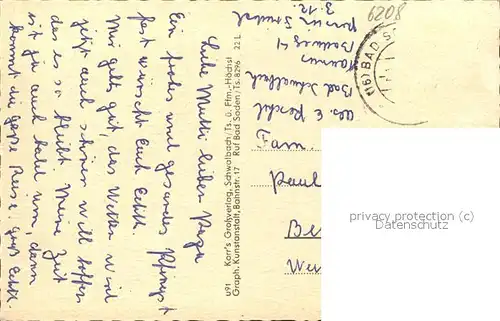 6208
(16) BAD S
Liebe Mutti lieber Papa
Ein frohes und gesundes Pfingst
fest wünscht Euch Edith.
Mir gehts gut, das Wetter wird
jetzt auch schöner will hoffen
das es so bleibt. Meine Zeit
ist ja auch bald um, dann
kommt die große Reise. Gruß Edith.
U91 Korr's Großverlag, Schwalbach/Ts. ü. Ffm.-Höchst 22 L
Graph. Kunstanstalt, Bahnstr. 17 Ruf Bad Soden/Ts. 8296
Abs. E.
Bad Schwalbach
Taunus
Z. 12
Fam.
Paul
Be
We
privacy protection (c)
Datenschutz